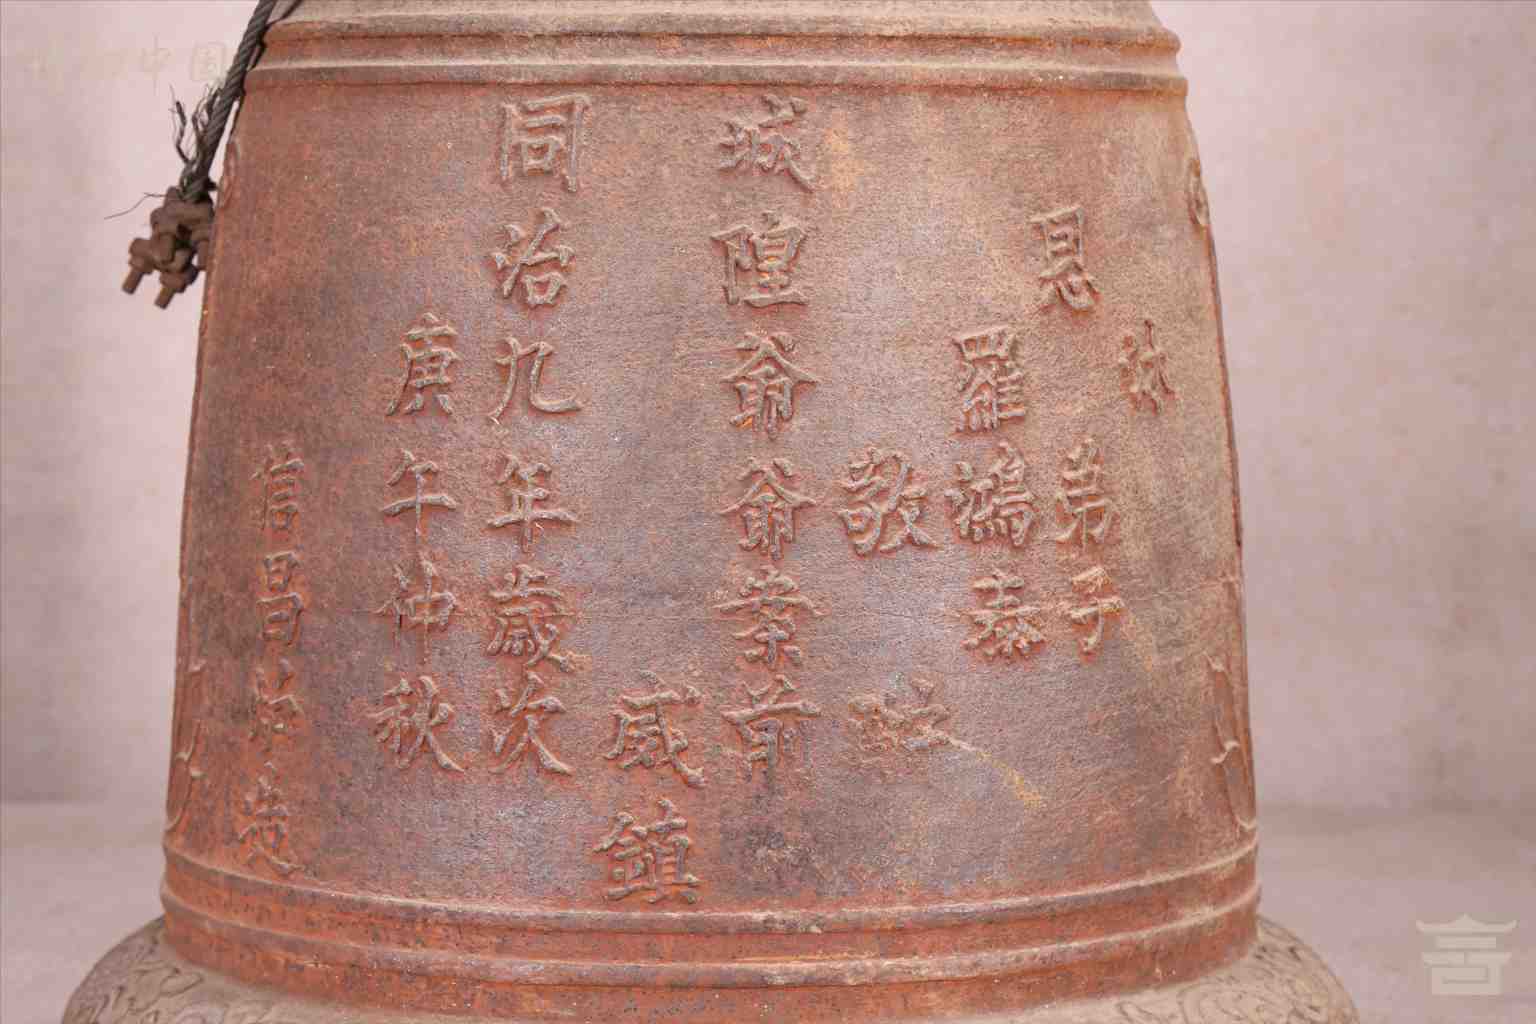 沐
恩
弟子
羅鴻泰
敬
城隍爺爺案前
威鎮
同治九年歲次
庚午仲秋
信昌爐造